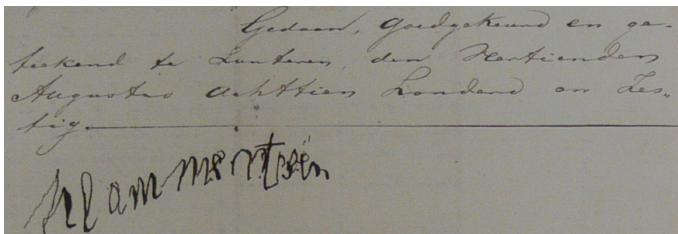 Gedaan, Goedgekeurd en ge-
teekend te Lunteren, den Dertienden
Augustus Achttien honderd en Zes„
tig.